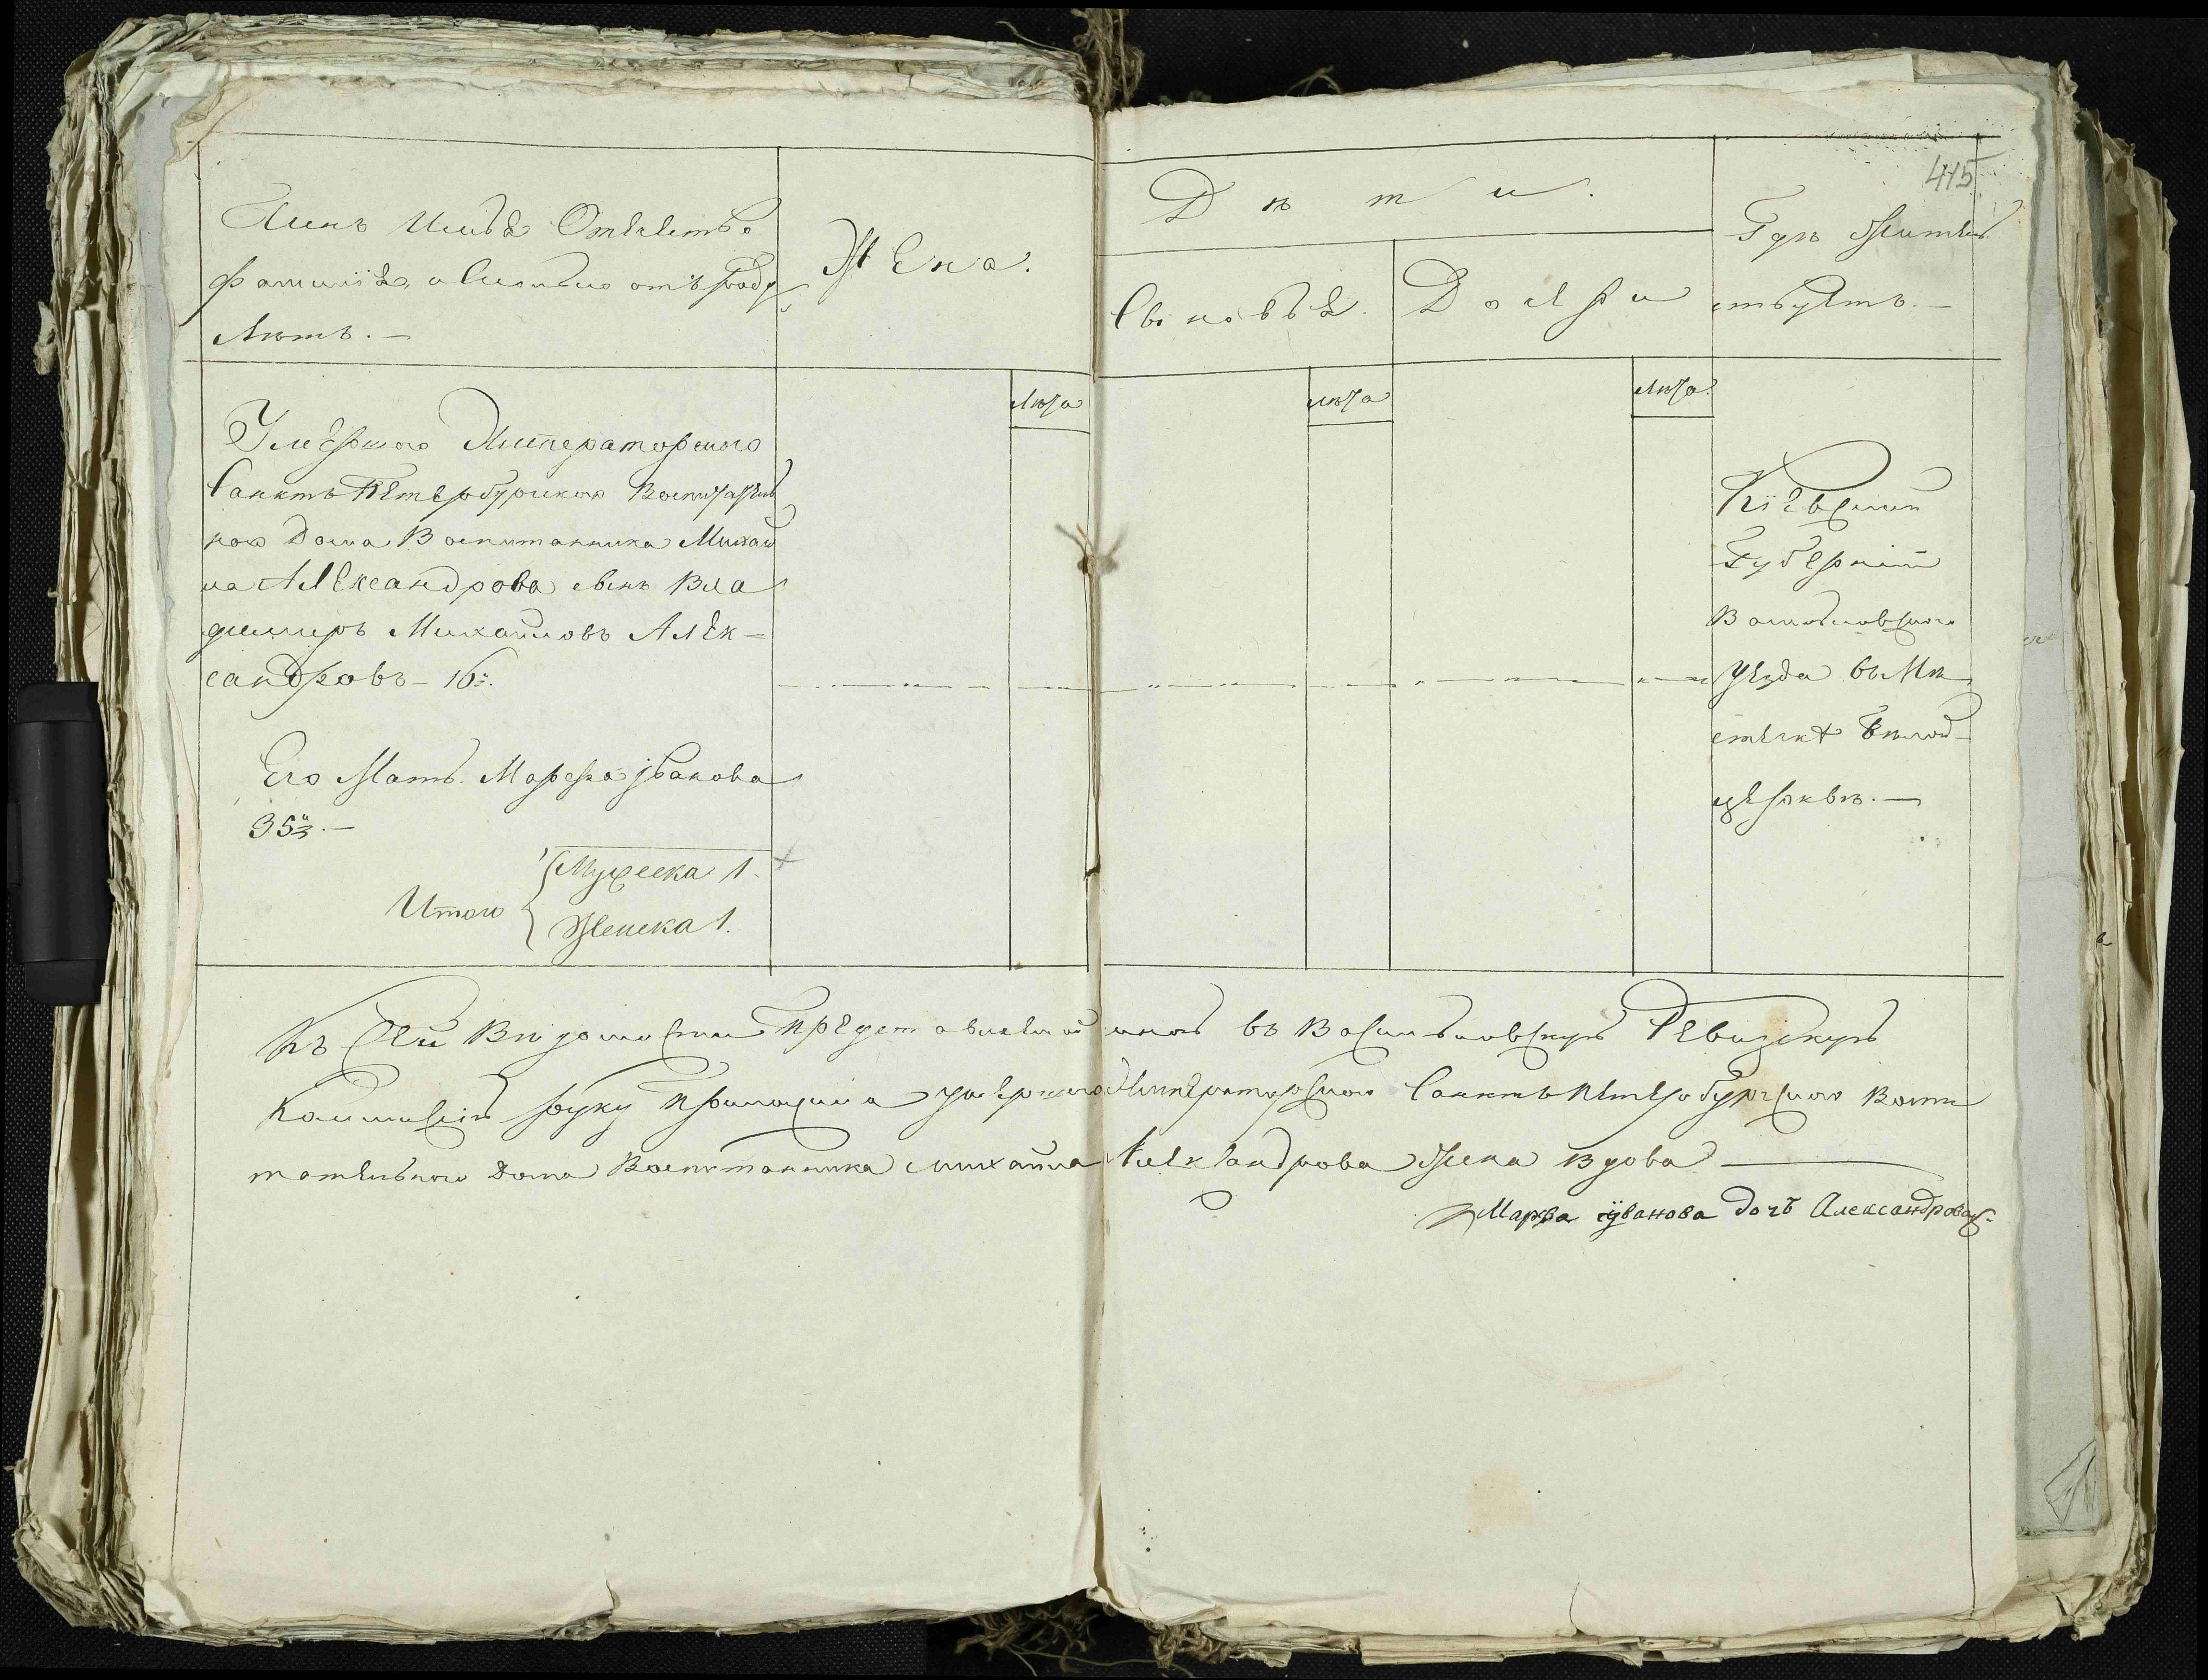 415
Чинъ Имя Отчество
Фамилія, и сколько отъ роду
лѣтъ. —
Жена.
Дѣти.
Сыновья.
Дочери
Гдѣ жител
ствуетъ. —
лѣта
лѣта
лѣта.
Умершаго Императорскаго
Санктъ Петербурского Воспитатель
ного Дома Воспитанника Михай
ла Александрова сынъ Вла
димиръ Михайловъ Алек=
сандровъ — 16.
Его Мать Марфа Іванова
35. —
Итого { Мужеска 1.
Женска 1.
Кіевской
Губерніи
Васильковского
уезда въ Мѣ
стечкѣ Бѣлой
церквѣ. —
Къ сей Вѣдомости представленной мною въ Васильковскую Ревизскую
Коммисію руку приложила умершаго Императорского Санктъ Петербургского Воспи
тательного Дома Воспитанника михайла Александрова жена вдова
Марфа іванова дочь Александрова